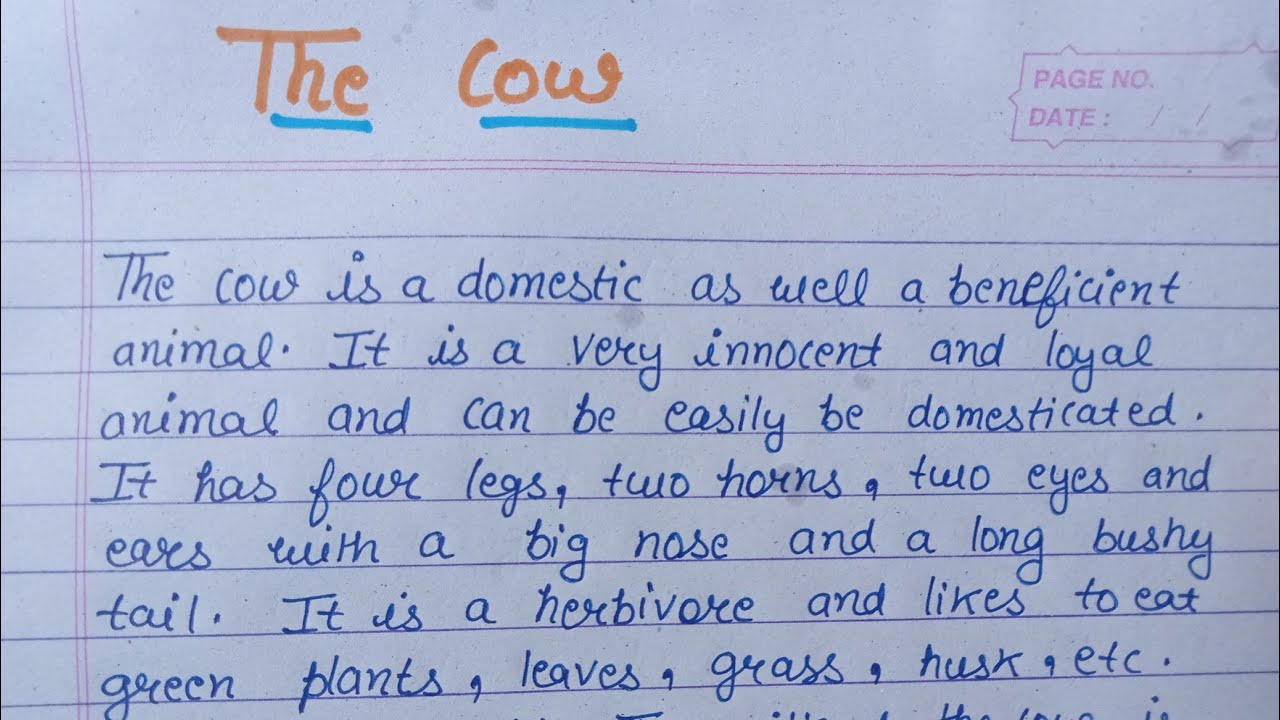 The Cow
PAGE NO.
DATE : / /
The cow is a domestic as well a beneficient
animal. It is a very innocent and loyal
animal and can be easily be domesticated.
It has four legs, two horns, two eyes and
ears with a big nose and a long bushy
tail. It is a herbivore and likes to eat
green plants, leaves, grass, husk, etc.
the cow is